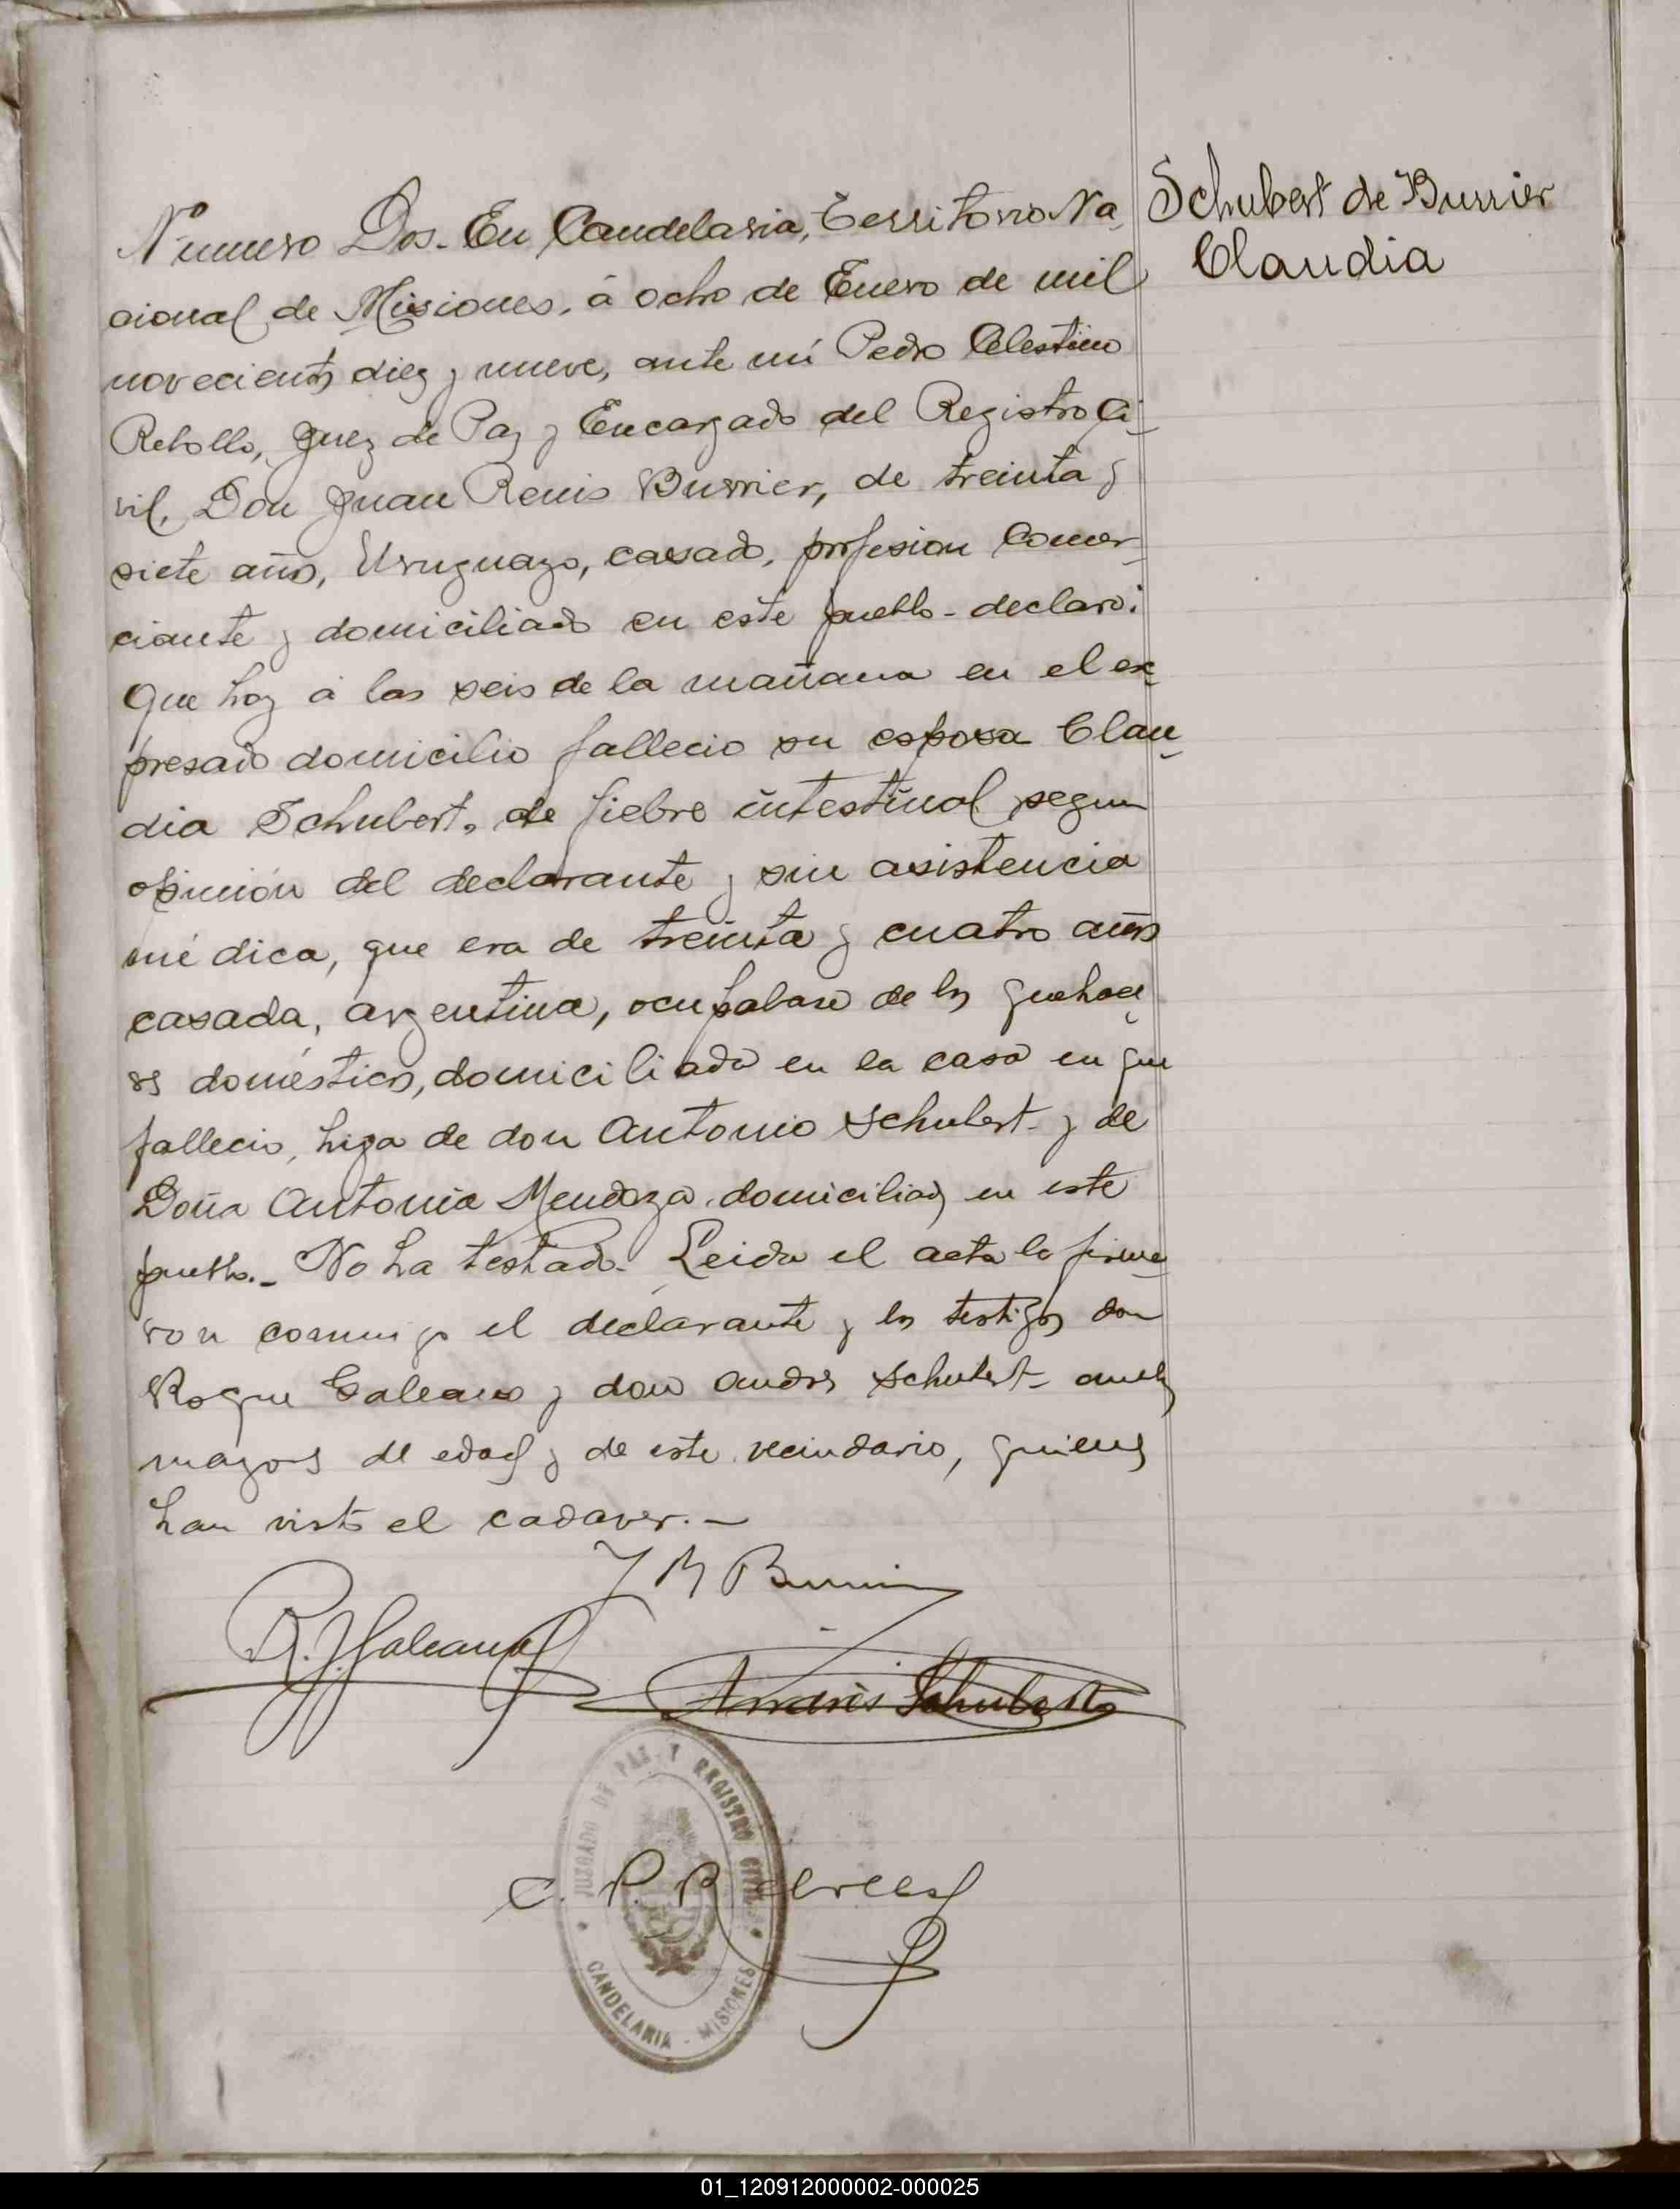 Número Dos. En Candelaria, Territorio Na
cional de Misiones, á ocho de Enero de mil
novecientos diez y nueve, ante mi Pedro Celestino
Rebollo, Juez de Paz y Encargado del Registro Ci-
vil, Don Juan Renis Burrier, de treinta y
siete años, Uruguayo, casado, profesion Comer-
ciante y domiciliado en este pueblo - declaró:
Que hoy á las seis de la mañana en el ex-
presado domicilio fallecio su esposa Clau-
dia Schubert, de fiebre intestinal segun
opinión del declarante y sin asistencia
médica, que era de treinta y cuatro años
casada, argentina, ocupabase de los quehace
res domésticos, domiciliada en la casa en que
fallecio, hija de don Antonio Schubert y de
Doña Antonia Mendoza domiciliados en este
pueblo.- No ha testado. Leida el acta la firma
ron conmigo el declarante y los testigos don
Roque Galeano y don Andres Schubert - ambos
mayores de edad y de este vecindario, quienes
han visto el cadaver.-
Schubert de Burrier
Claudia
Burrier
R. J. Galeano
Andrés Schubert
JUZGADO DE PAZ Y REGISTRO CIVIL
CANDELARIA - MISIONES
01_120912000002-000025